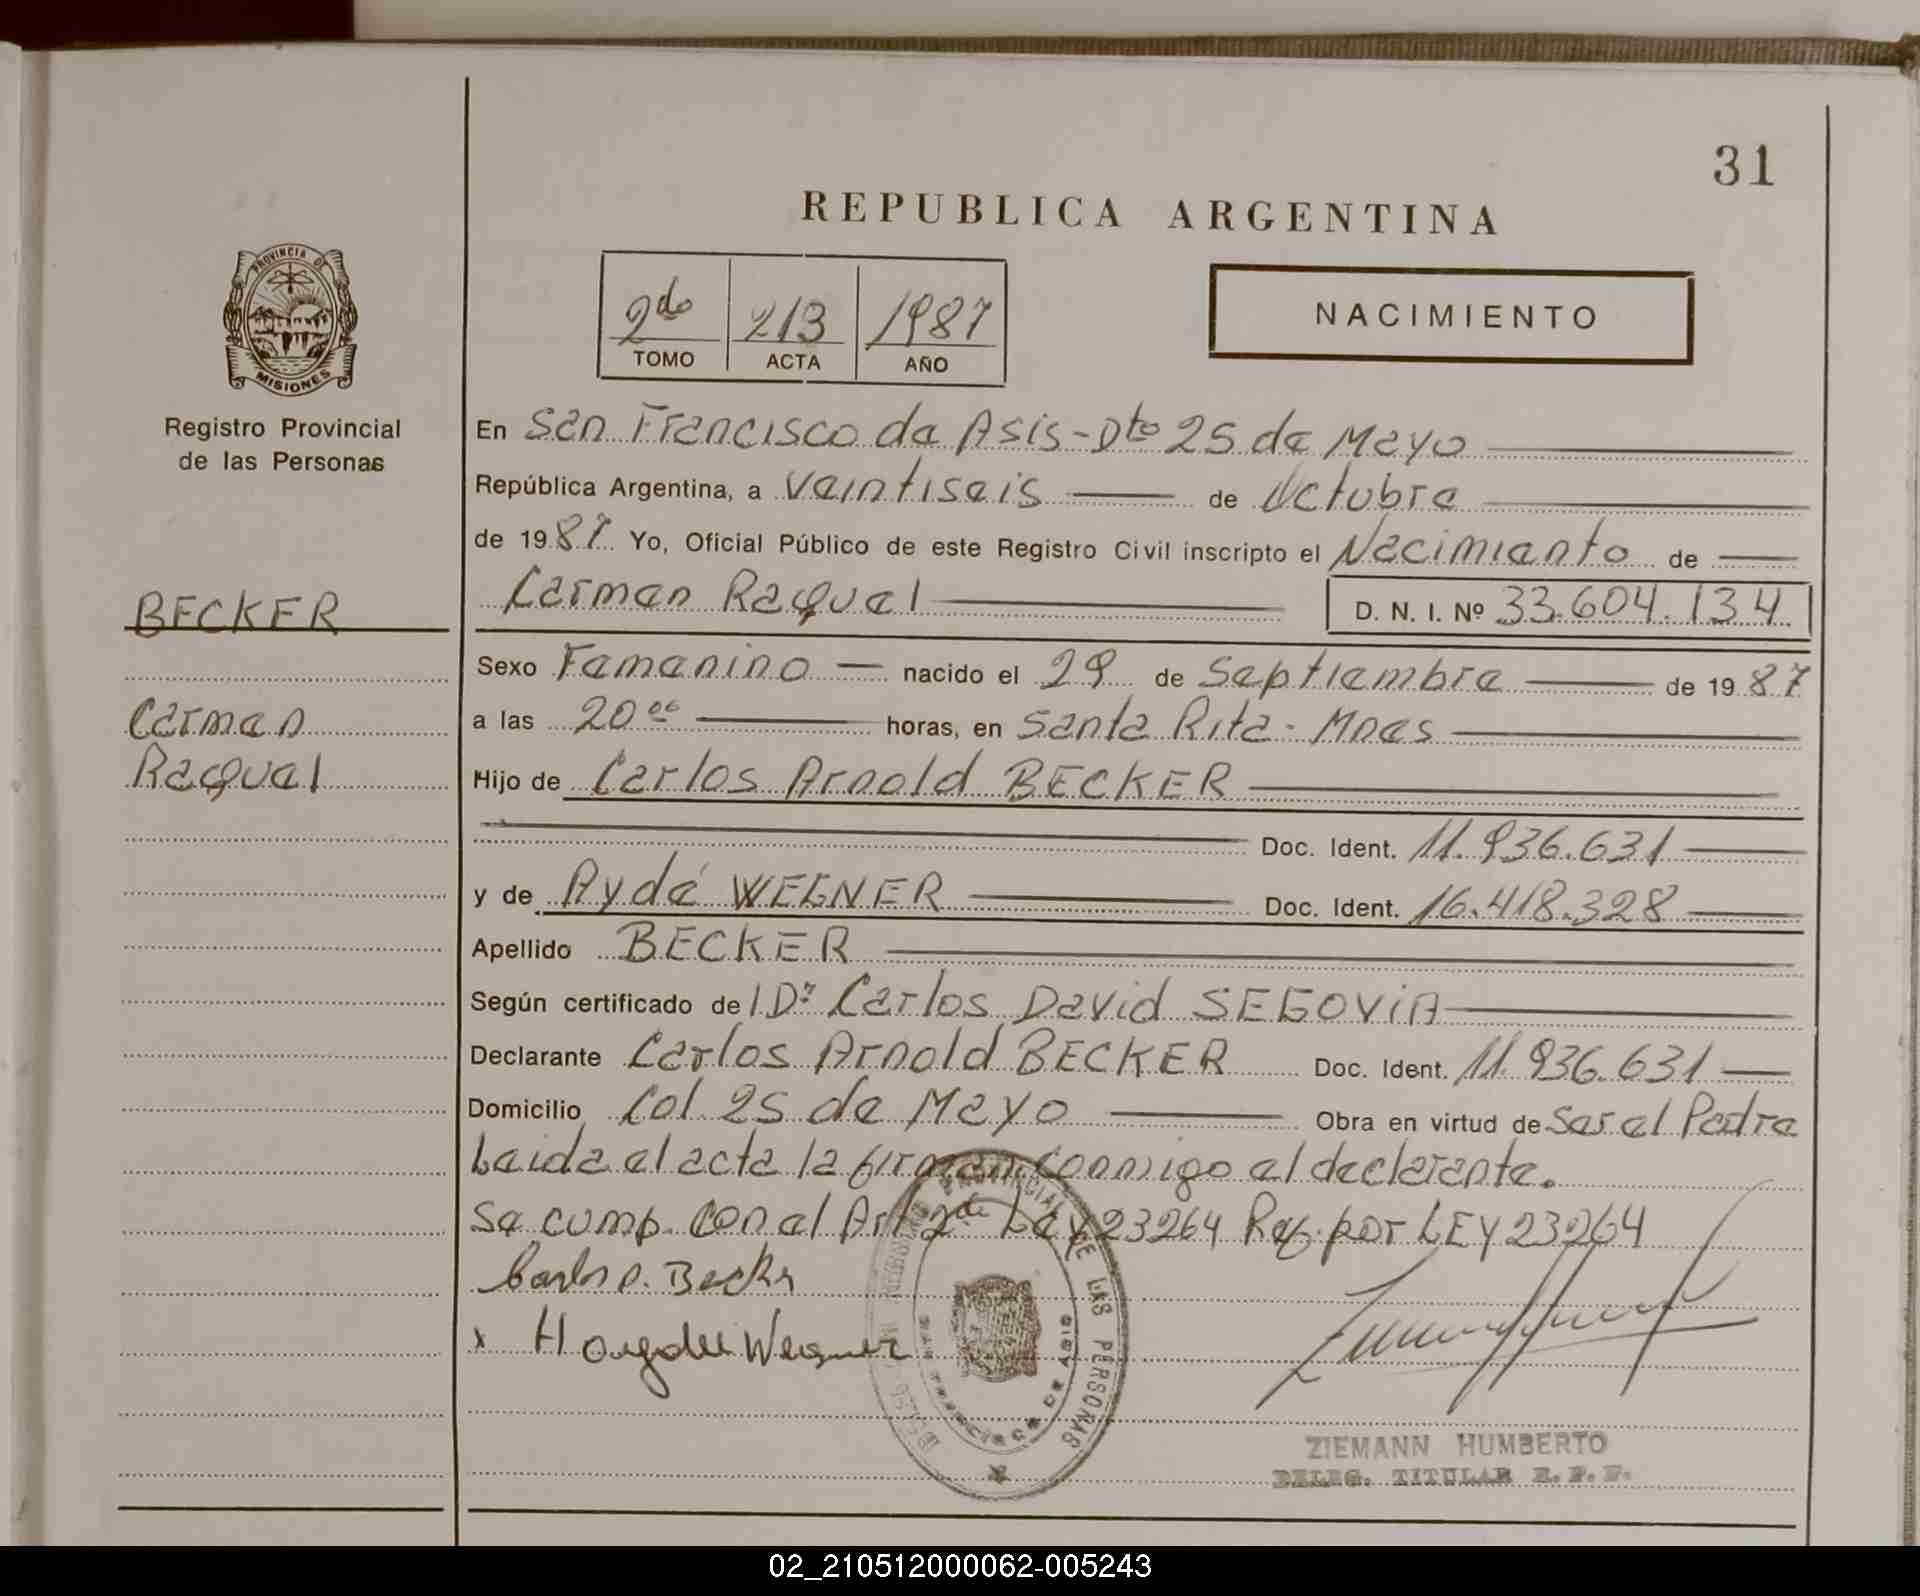 31
REPUBLICA ARGENTINA
PROVINCIA DE
MISIONES
2do 213 1987
TOMO ACTA AÑO
NACIMIENTO
Registro Provincial
de las Personas
En San Francisco de Asis - Dto 25 de Mayo
República Argentina, a Veintiseis de Octubre
de 1987 Yo, Oficial Público de este Registro Civil inscripto el Nacimiento de
Carmen Raquel D. N. I. Nº 33.604.134
BECKER
Carmen
Raquel
Sexo Femenino nacido el 29 de Septiembre de 1987
a las 20 00 horas, en Santa Rita - Mnes
Hijo de Carlos Arnold BECKER
Doc. Ident. 11.936.631
y de Aydé WEGNER Doc. Ident. 16.418.328
Apellido BECKER
Según certificado de Dr Carlos David SEGOVIA
Declarante Carlos Arnold BECKER Doc. Ident. 11.936.631
Domicilio Col 25 de Mayo Obra en virtud de Ser el Padre
Leida el acta la firman conmigo el declarante.
Se cump. con el Art 2do Ley 23264 Req. por LEY 23264
Carlos A. Becker
x Haydee Wegner
PROVINCIAL DE LAS PERSONAS
SAN FRANCISCO DE ASIS
ZIEMANN HUMBERTO
DELEG. TITULAR R. P. P.
02_210512000062-005243